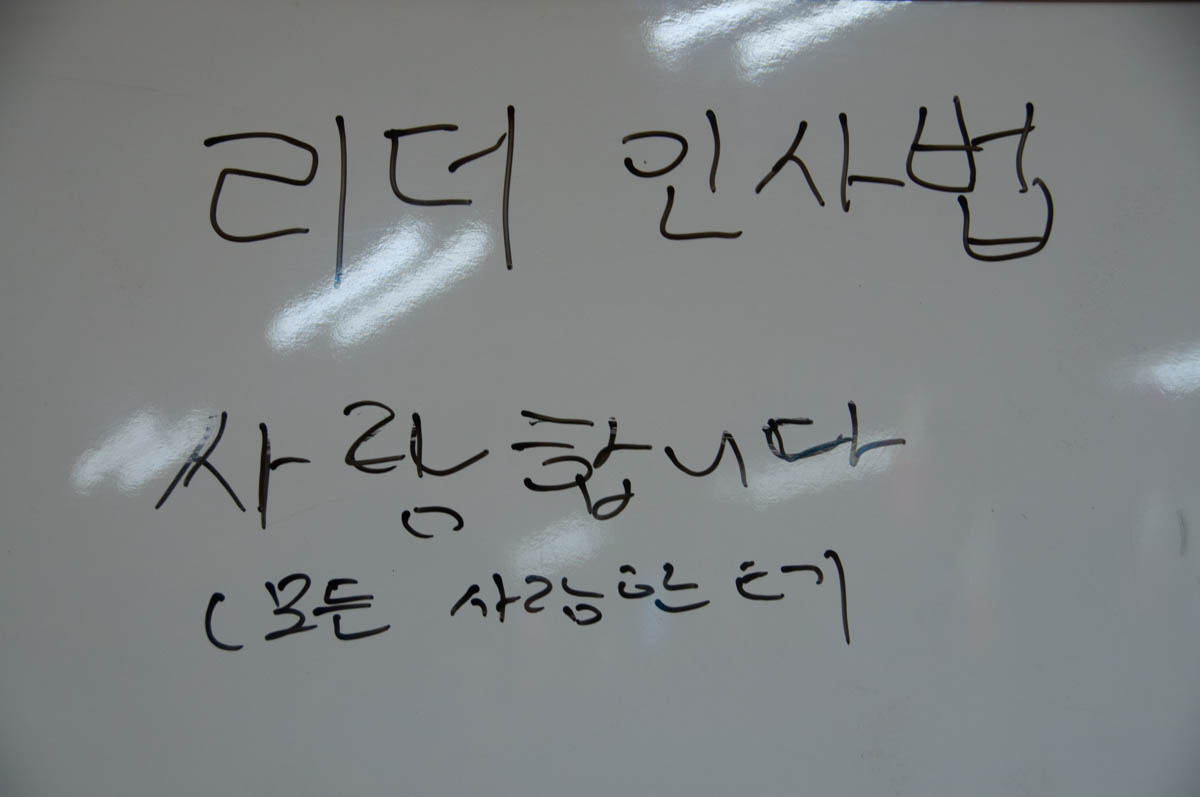 리더 인사법
사랑합니다
(모든 사람한테